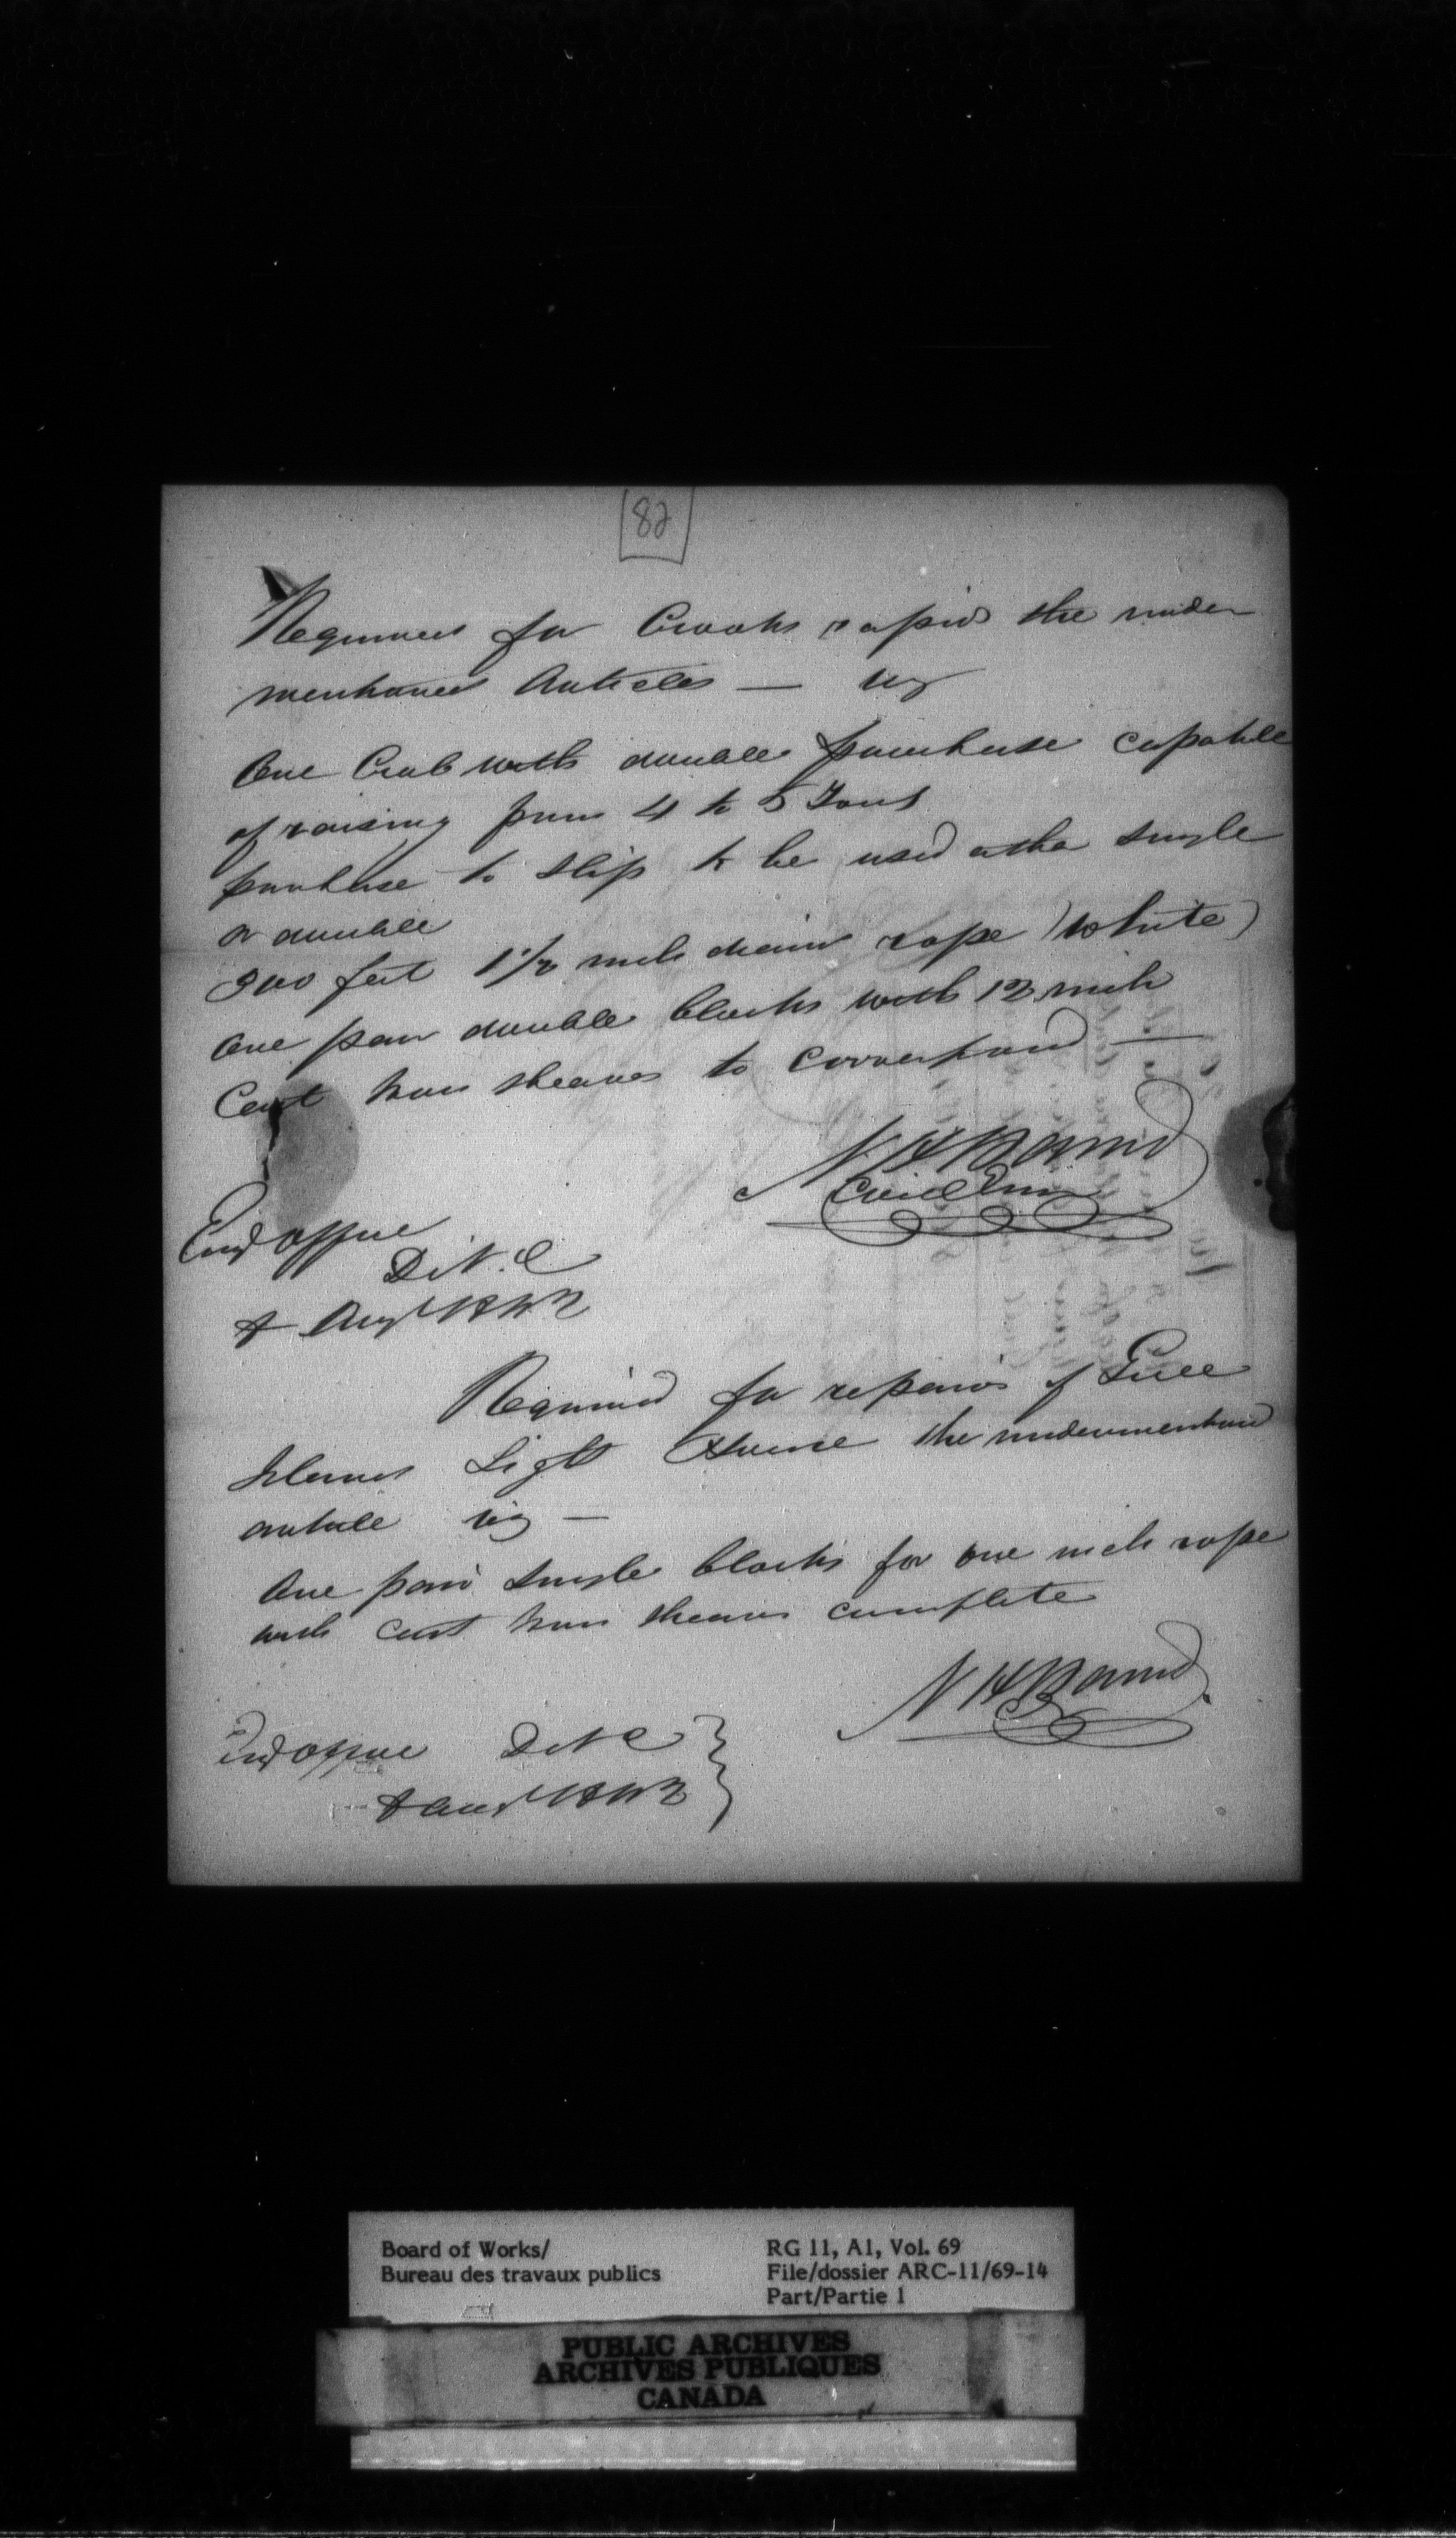 82
Required for Crooks rapids the under
mentioned Articles — viz
One Crab with double purchase capable
of raising from 4 to 5 Tons
purchase to slip to be used either single
or double
300 feet 1½ inch diam rope (White)
One pair double blocks with 12 inch
Cast Iron sheaves to correspond —
N H Baird
Civil Engr
Eng Office
D. N. C
Augt 1842
Required for repairs of Gull
Island Light House the undermentioned
article viz —
One pair single blocks for one inch rope
with cast Iron sheaves complete
N H Baird
Eng Office D N C
Augt 1842
Board of Works/
Bureau des travaux publics
RG 11, A1, Vol. 69
File/dossier ARC-11/69-14
Part/Partie 1
PUBLIC ARCHIVES
ARCHIVES PUBLIQUES
CANADA